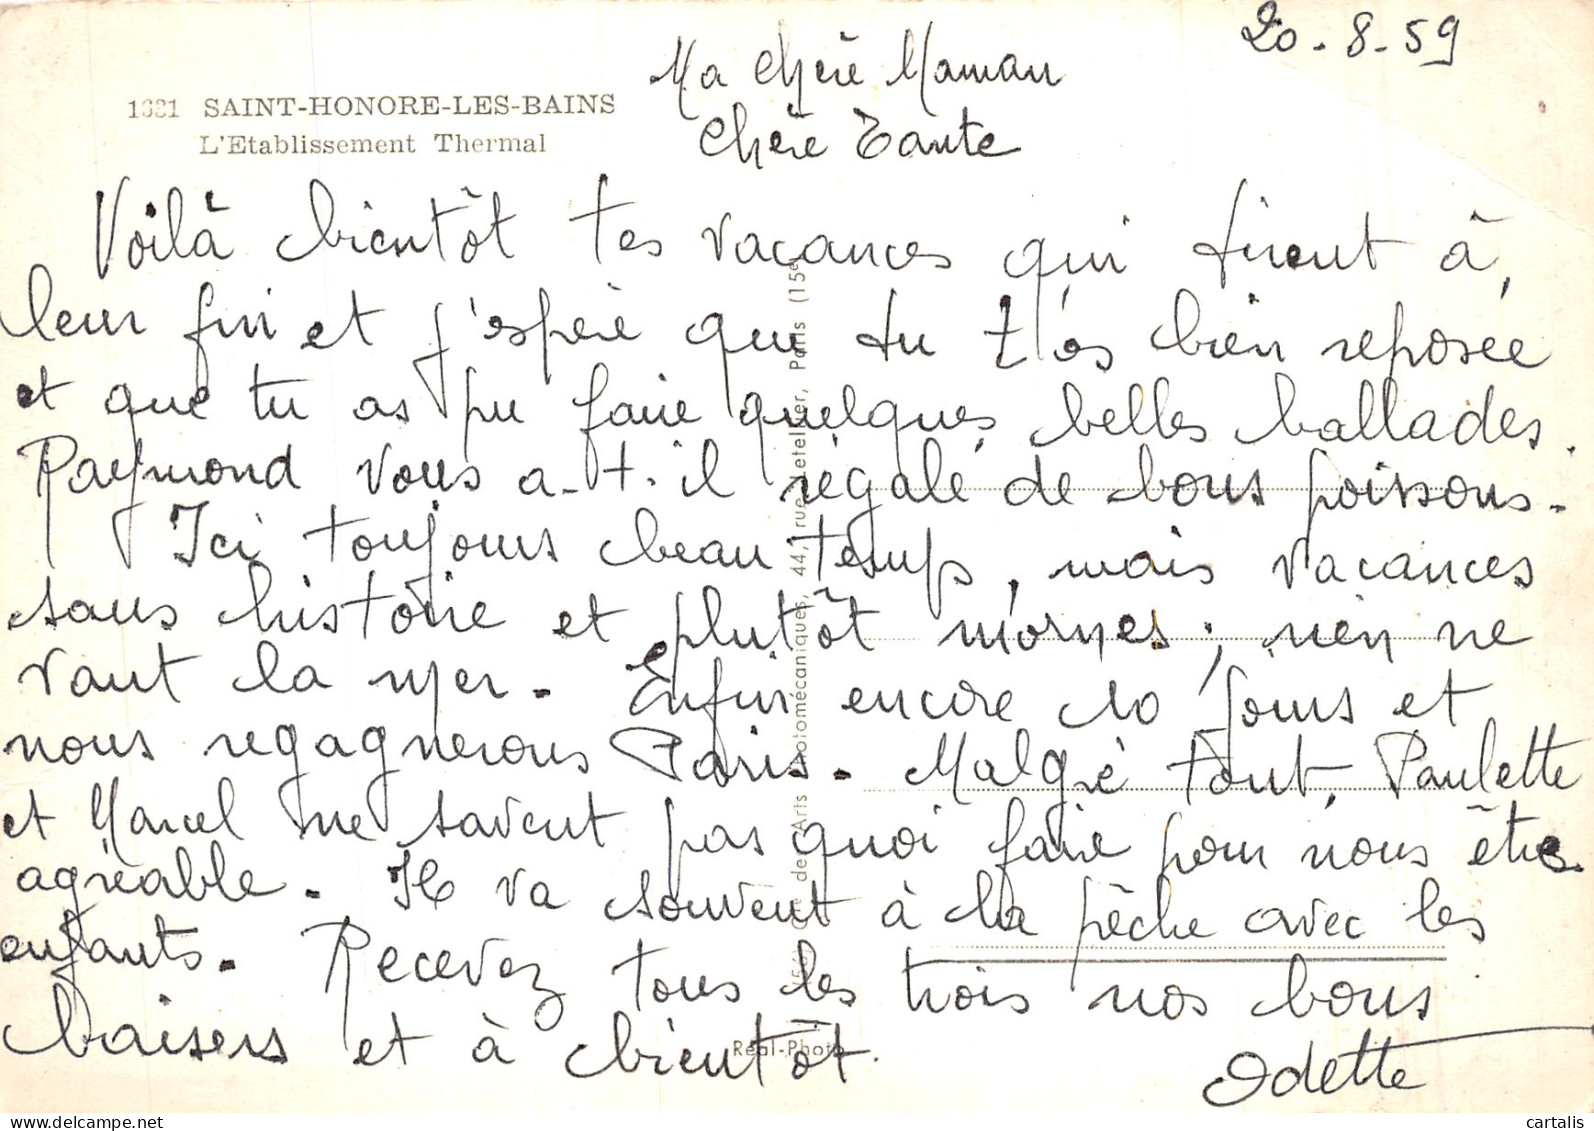 20-8-59
Ma chère Maman
Chère Tante
1621 SAINT-HONORE-LES-BAINS
L'Etablissement Thermal
Voilà bientôt tes vacances qui tirent à
leur fin et j'espère que tu t'es bien reposée
et que tu as pu faire quelques belles ballades.
Raymond vous a-t-il régalé de bons poissons.
Ici toujours beau temps, mais vacances
sans histoire et plutôt mornes; rien ne
vaut la mer. Enfin encore 10 jours et
nous regagnerons Paris. Malgré tout, Paulette
et Marcel ne savent pas quoi faire pour nous être
agréable. Il va souvent à la pêche avec les
enfants. Recevez tous les trois nos bons
baisers et à bientôt.
Odette
des Arts Photomécaniques, 44, rue Letellier, Paris (15e)
Réal-Photo
cartalis
www.delcampe.net